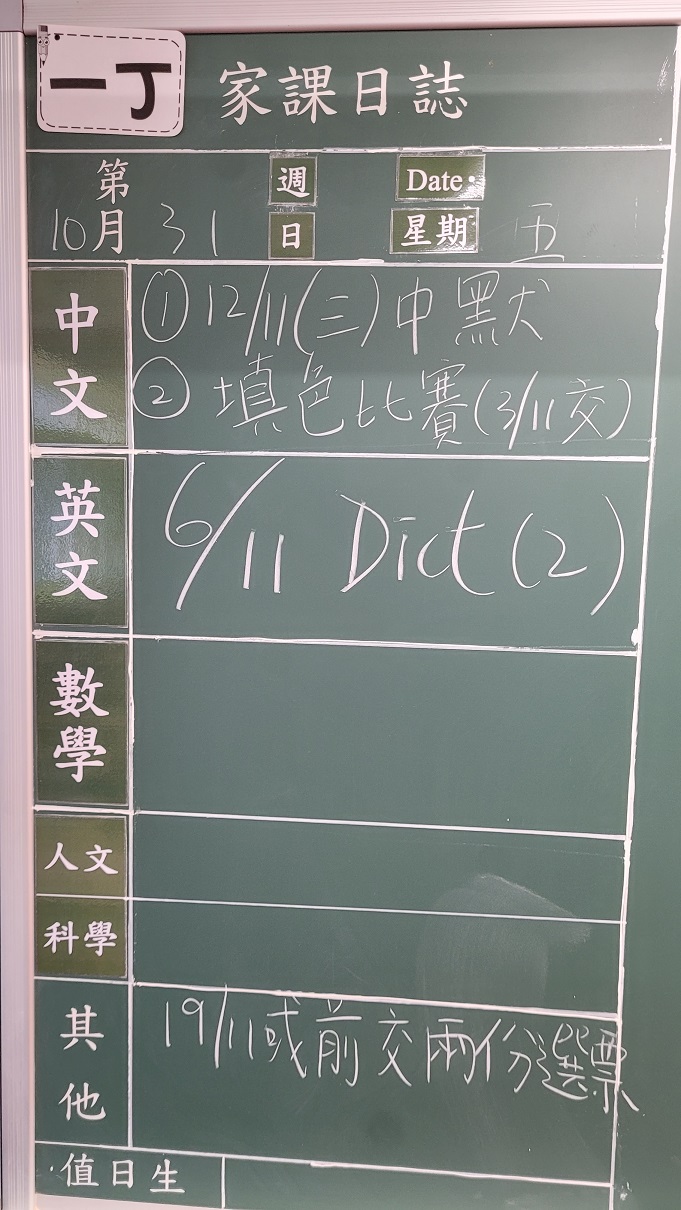 一丁
家課日誌
第 週 Date
10月31日 星期 五
中文
①12/11(三)中默
②填色比賽(3/11交)
英文
6/11 Dict(2)
數學
人文
科學
其他
19/11或前交兩份選票
值日生